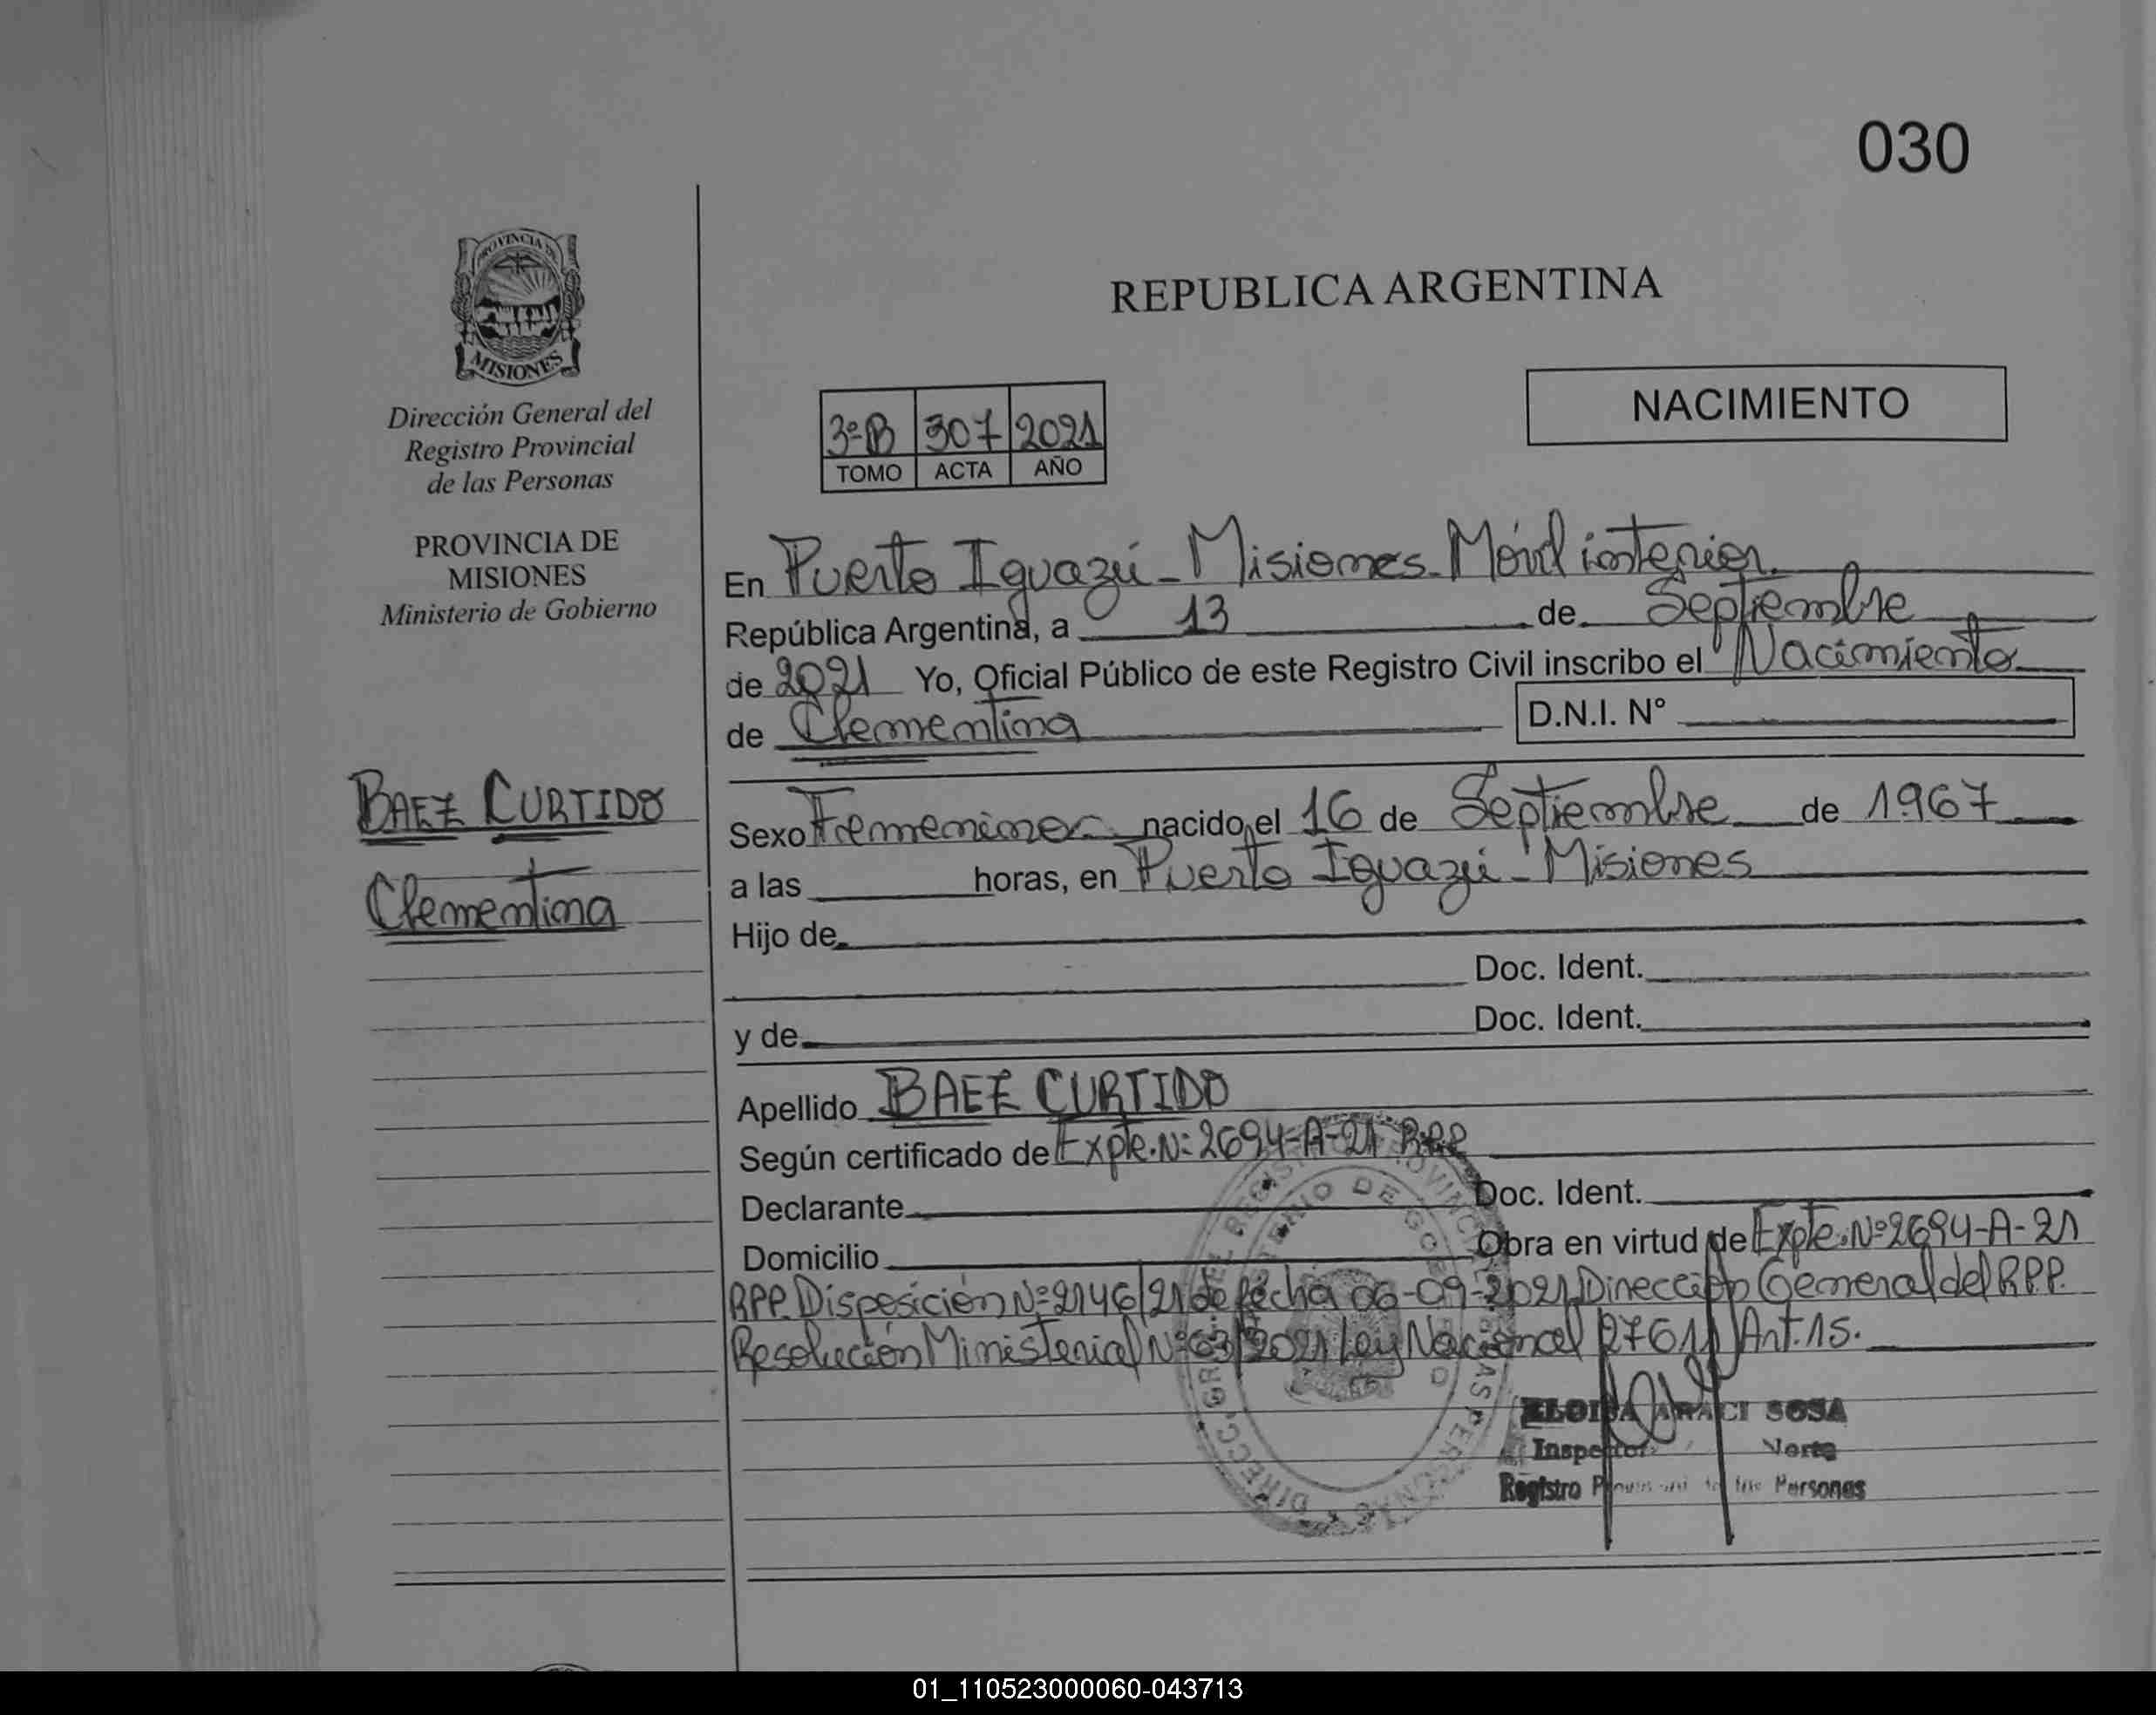 030
PROVINCIA DE
MISIONES
REPUBLICA ARGENTINA
NACIMIENTO
Dirección General del
Registro Provincial
de las Personas
PROVINCIA DE
MISIONES
Ministerio de Gobierno
3º-B 307 2021
TOMO ACTA AÑO
En Puerto Iguazú - Misiones - Móvil interior.
República Argentina, a 13 de Septiembre
de 2021 Yo, Oficial Público de este Registro Civil inscribo el Nacimiento
de Clementina D.N.I. N°
BAEZ CURTIDO
Clementina
Sexo Femenino nacido el 16 de Septiembre de 1967
a las horas, en Puerto Iguazú - Misiones
Hijo de
Doc. Ident.
y de Doc. Ident.
Apellido BAEZ CURTIDO
Según certificado de Expte. Nº 2694-A-21 RPP
Declarante Doc. Ident.
Domicilio Obra en virtud de Expte. Nº 2694-A-21
RPP. Disposición Nº 2146/21 de fecha 06-09-2021 Dirección General del R.P.P.
Resolución Ministerial Nº 63/2021 Ley Nacional 27611 Art. 15.
ARACI SOSA
Inspector Norte
Registro Personas
01_110523000060-043713